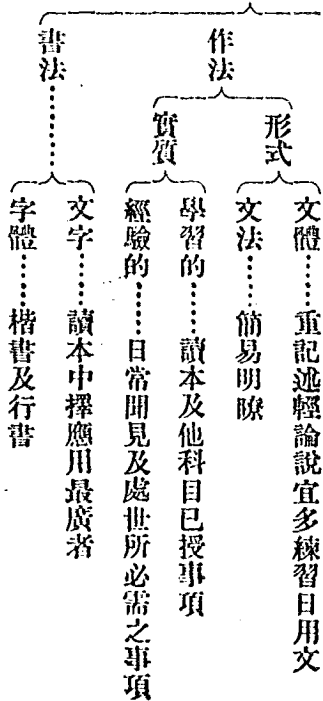 作法
形式
文體……重記述輕論說宜多練習日用文
文法……簡易明瞭
實質
學習的……讀本及他科目已授事項
經驗的……日常聞見及處世所必需之事項
書法……
文字……讀本中擇應用最廣者
字體……楷書及行書